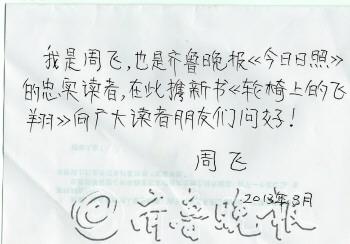 我是周飞,也是齐鲁晚报《今日日照》
的忠实读者,在此携新书《轮椅上的飞
翔》向广大读者朋友们问好!
周飞
2013年3月
@齐鲁晚报